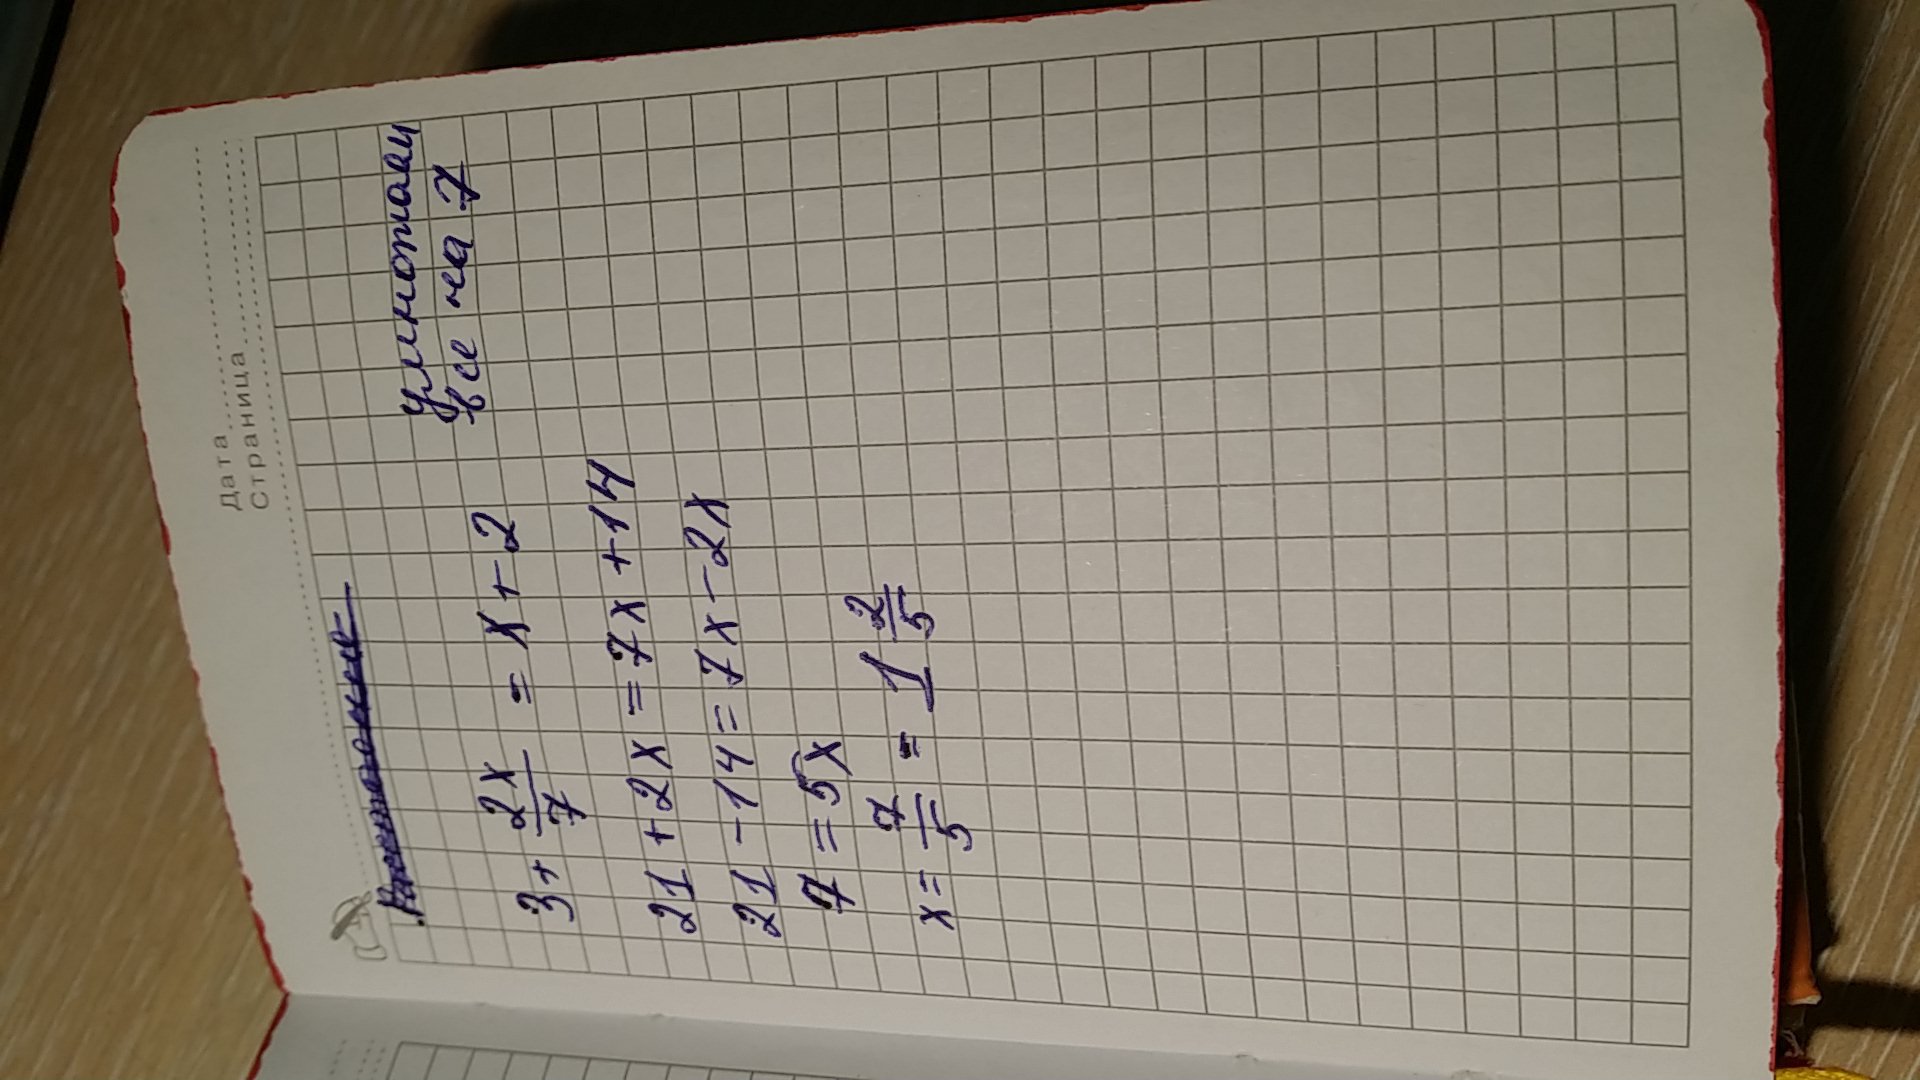 Дата
Страница
умножаем
все на 7
3 + 2x/7 = x + 2
21 + 2x = 7x + 14
21 - 14 = 7x - 2x
7 = 5x
x = 7/5 = 1 2/5